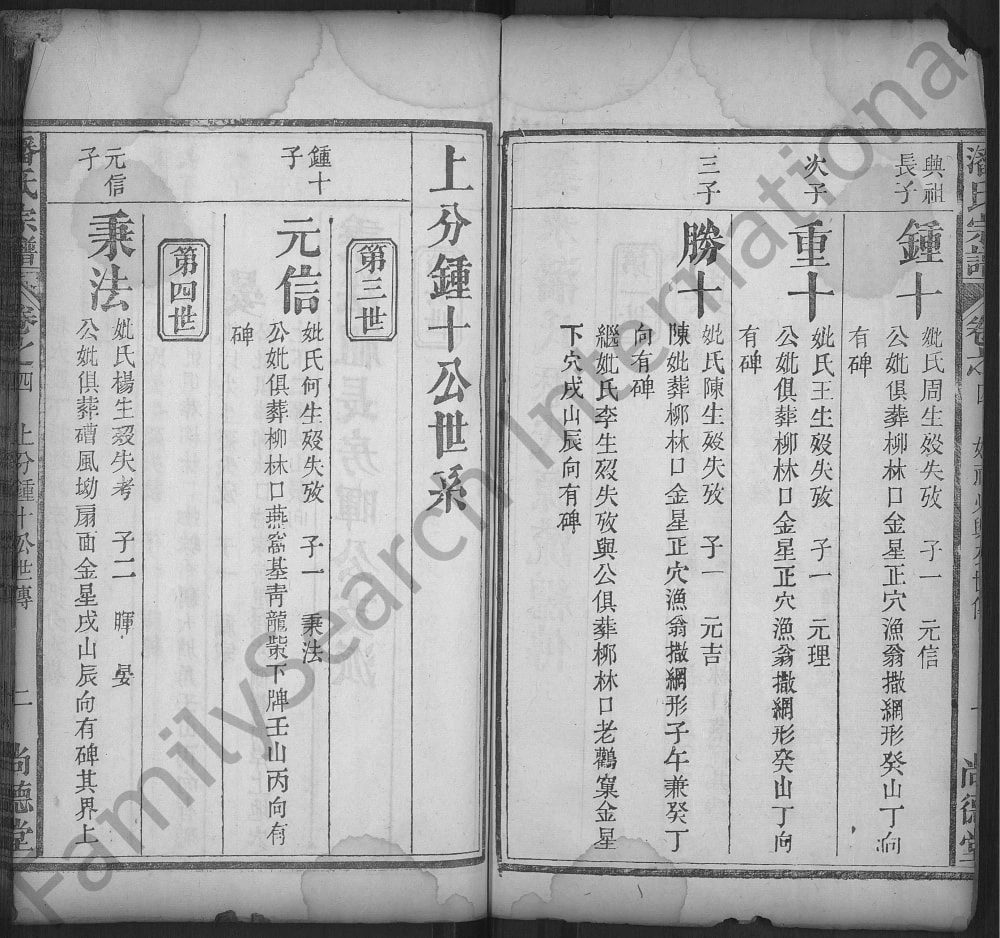 潘氏宗譜
卷之四
尚德堂
興祖
長子
鍾十
妣氏周生歿失攷　子一　元信
公妣俱葬柳林口金星正穴漁翁撒網形癸山丁向
有碑
次子
重十
妣氏王生歿失攷　子一　元理
公妣俱葬柳林口金星正穴漁翁撒網形癸山丁向
有碑
三子
勝十
妣氏陳生歿失攷　子一　元吉
陳妣葬柳林口金星正穴漁翁撒網形子午兼癸丁
向有碑
繼妣氏李生歿失攷與公俱葬柳林口老鸛窠金星
下穴戌山辰向有碑
上分鍾十公世系
第三世
鍾十
子
元信
妣氏何生歿失攷　子一　秉法
公妣俱葬柳林口燕窩基青龍嘴下牌壬山丙向有
碑
第四世
元信
子
秉法
妣氏楊生歿失考　子二　暉　晏
公妣俱葬磳風坳扇面金星戌山辰向有碑其界上
潘氏宗譜
卷之四
上分鍾十公世傳
二
尚德堂
FamilySearch International